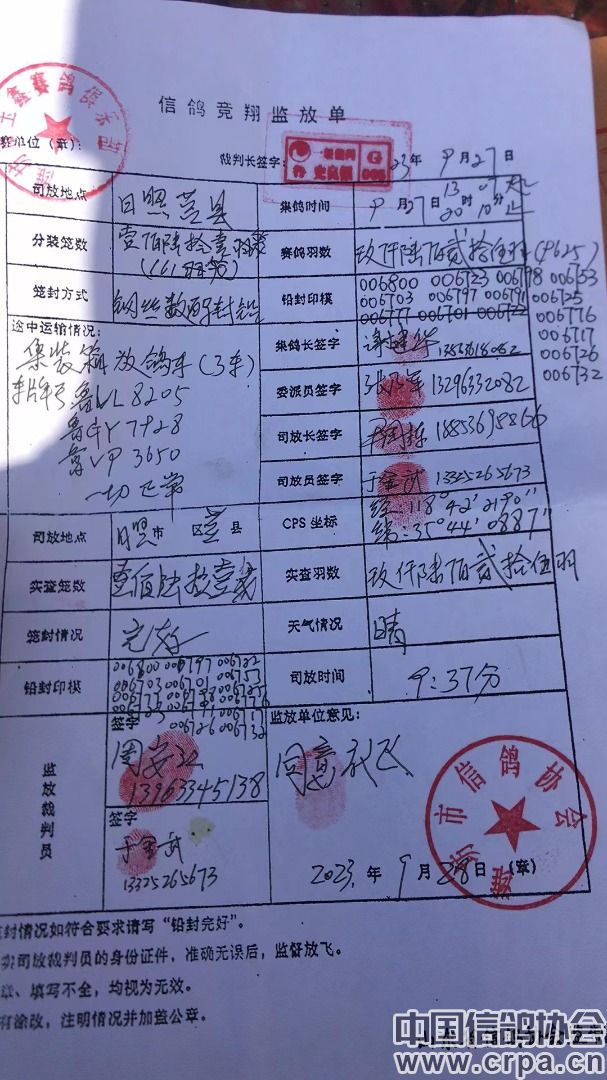 信鸽竞翔监放单
鑫赛鸽俱乐部
赛单位(章):
裁判长签字:
23年 9月27日
司放地点 日照莒县 集鸽时间 9月27日 13时07分起 20时10分止
分装笼数 壹佰陆拾壹羽笼 (161羽笼) 赛鸽羽数 玖仟陆佰贰拾伍羽(9625)
笼封方式 铅封印模
006800 006723 006798 006653
006703 006797 006791 006725
006777 006701 006722 006776
006717
006726
006732
途中运输情况:
集装箱放鸽车(3车)
车牌号 鲁VL8205
7928
鲁VP3650
一切正常
集鸽长签字
委派员签字 13296332082
司放长签字 18853698866
司放员签字 于金武 13325265673
司放地点 日照市 区莒县 CPS坐标 经:118°42′2190″
纬:35°44′0887″
实查笼数 壹佰陆拾壹笼 实查羽数 玖仟陆佰贰拾伍羽
笼封情况 完好 天气情况 晴
铅封印模
006800 006797 006722
006703 006701 006753
006726 006732
司放时间 9:37分
监放裁判员
签字
周安江
13963345138
签字
于金武
13325265673
监放单位意见:
同意放飞
市信鸽协会
2023年 9月28日 (章)
封情况如符合要求请写“铅封完好”。
司放裁判员的身份证件,准确无误后,监督放飞。
章、填写不全,均视为无效。
有涂改,注明情况并加盖公章。
中国信鸽协会
www.crpa.cn